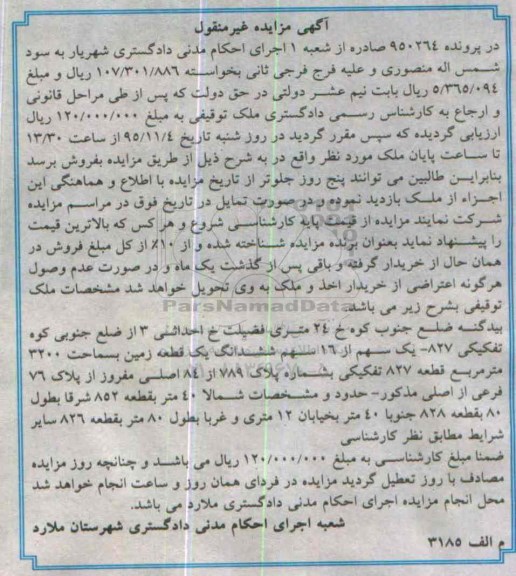 آگهی مزایده غیرمنقول
در پرونده ۹۵۰۲۶۴ صادره از شعبه ۱ اجرای احکام مدنی دادگستری شهریار به سود
شمس اله منصوری و علیه فرج فرجی ثانی بخواسته ۱۰۷/۳۰۱/۸۸۶ ریال و مبلغ
۵/۳۶۵/۰۹۴ ریال بابت نیم عشر دولتی در حق دولت که پس از طی مراحل قانونی
و ارجاع به کارشناس رسمی دادگستری ملک توقیفی به مبلغ ۱۲۰/۰۰۰/۰۰۰ ریال
ارزیابی گردیده که سپس مقرر گردید در روز شنبه تاریخ ۹۵/۱۱/۴ از ساعت ۱۳/۳۰
تا ساعت پایان ملک مورد نظر واقع در به شرح ذیل از طریق مزایده بفروش برسد
بنابراین طالبین می توانند پنج روز جلوتر از تاریخ مزایده با اطلاع و هماهنگی این
اجراء از ملک بازدید نموده و در صورت تمایل در تاریخ فوق در مراسم مزایده
شرکت نمایند مزایده از قیمت پایه کارشناسی شروع و هر کس که بالاترین قیمت
را پیشنهاد نماید بعنوان برنده مزایده شناخته شده و از ۱۰٪ از کل مبلغ فروش در
همان حال از خریدار گرفته و باقی پس از گذشت یک ماه و در صورت عدم وصول
هرگونه اعتراضی از خریدار اخذ و ملک به وی تحویل خواهد شد مشخصات ملک
توقیفی بشرح زیر می باشد.
ParsNamadData
بیدگنه ضلع جنوب کوه خ ۲۴ متری فضیلت خ احداثی ۳ از ضلع جنوبی کوه
تفکیکی ۸۲۷- یک سهم از ۱۶ سهم ششدانگ یک قطعه زمین بمساحت ۳۲۰۰
مترمربع قطعه ۸۲۷ تفکیکی بشماره پلاک ۷۸۹ از ۸۴ اصلی مفروز از پلاک ۷۶
فرعی از اصلی مذکور- حدود و مشخصات شمالا ۴۰ متر بقطعه ۸۵۲ شرقا بطول
۸۰ بقطعه ۸۲۸ جنوبا ۴۰ متر بخیابان ۱۲ متری و غربا بطول ۸۰ متر بقطعه ۸۲۶ سایر
شرایط مطابق نظر کارشناسی
ضمنا مبلغ کارشناسی به مبلغ ۱۲۰/۰۰۰/۰۰۰ ریال می باشد و چنانچه روز مزایده
مصادف با روز تعطیل گردید مزایده در فردای همان روز و ساعت انجام خواهد شد
محل انجام مزایده اجرای احکام مدنی دادگستری ملارد می باشد.
شعبه اجرای احکام مدنی دادگستری شهرستان ملارد
م الف ۳۱۸۵